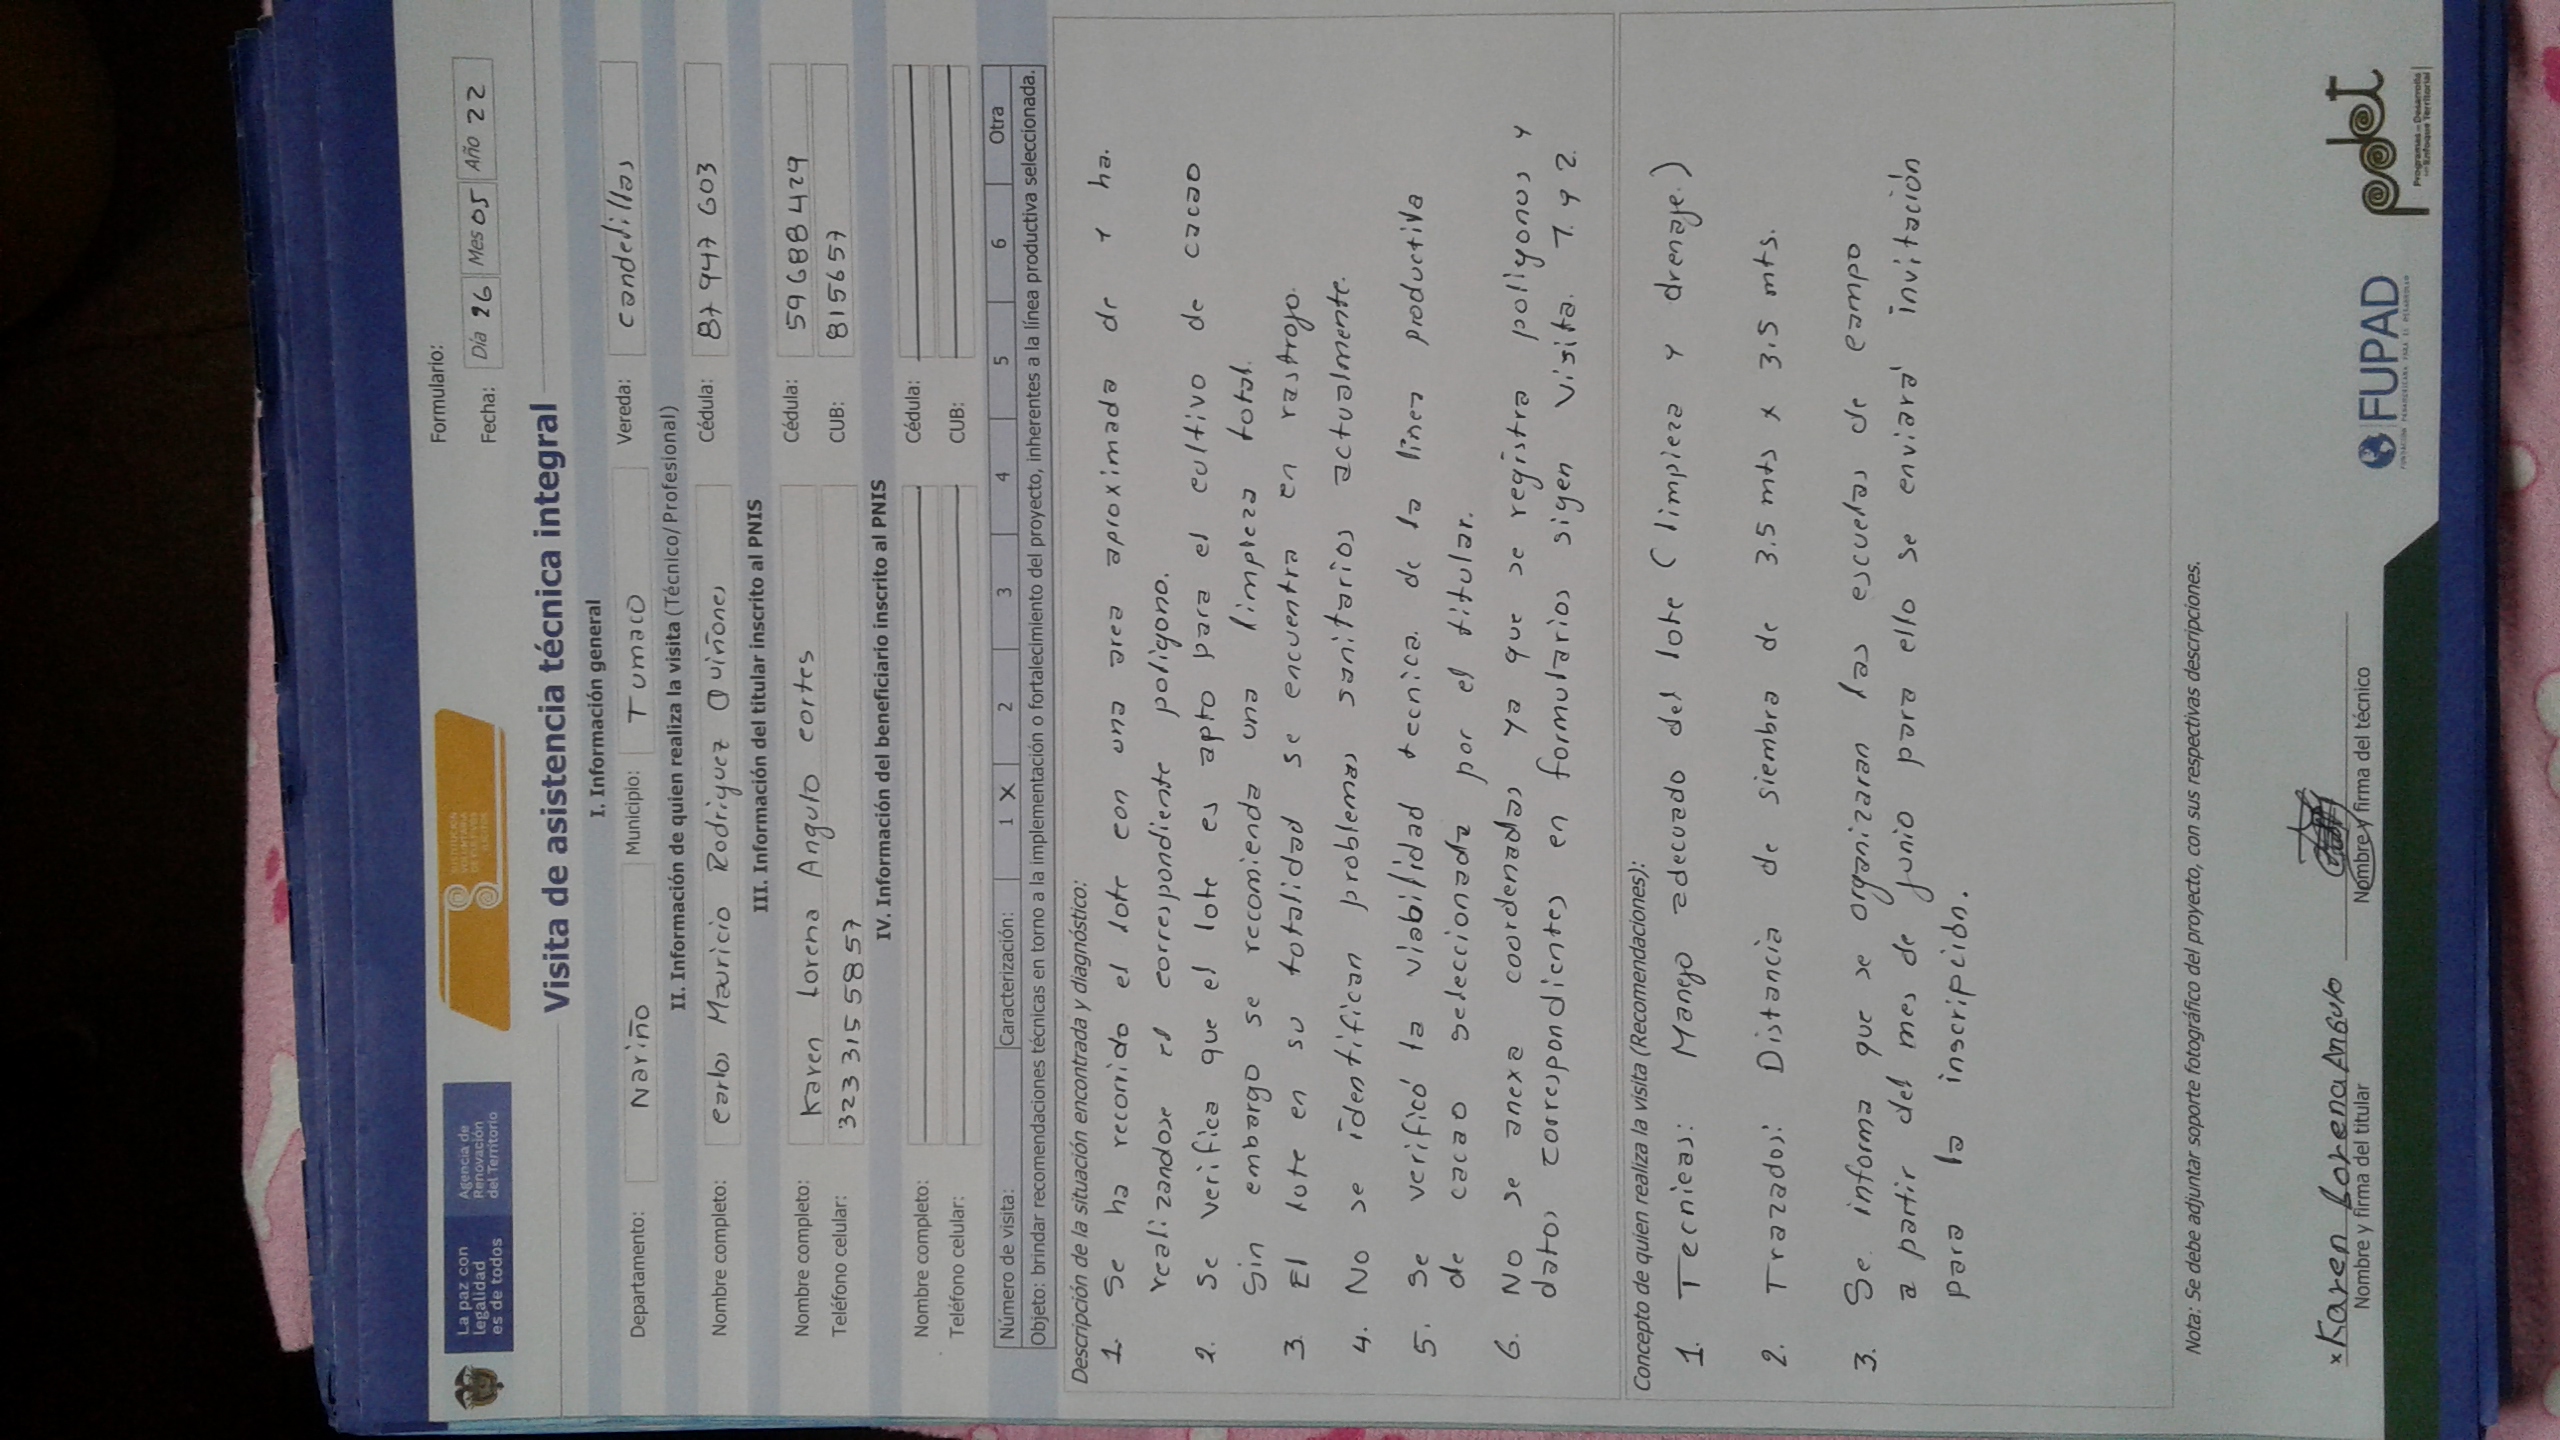 La paz con
legalidad
es de todos
Agencia de
Renovación
del Territorio
SUSTITUCIÓN
VOLUNTARIA
DE CULTIVOS
ILÍCITOS
Formulario:
Fecha: Día 26 Mes 05 Año 22
Visita de asistencia técnica integral
I. Información general
Departamento: Nariño Municipio: Tumaco Vereda: candelillas
II. Información de quien realiza la visita (Técnico/Profesional)
Nombre completo: carlos Mauricio Rodriguez Quiñones Cédula: 87 947 603
III. Información del titular inscrito al PNIS
Nombre completo: Karen Lorena Angulo cortes Cédula: 59688429
Teléfono celular: 3233155857 CUB: 815657
IV. Información del beneficiario inscrito al PNIS
Nombre completo: Cédula:
Teléfono celular: CUB:
Número de visita: Caracterización: 1 X 2 3 4 5 6 Otra
Objeto: brindar recomendaciones técnicas en torno a la implementación o fortalecimiento del proyecto, inherentes a la línea productiva seleccionada.
Descripción de la situación encontrada y diagnóstico:
1. Se ha recorrido el lote con una area aproximada de ha.
realizandose el correspondiente poligono.
2. Se verifica que el lote es apto para el cultivo de cacao
Sin embargo se recomienda una limpieza total.
3. El lote en su totalidad se encuentra en rastrojo.
4. No se identifican problemas sanitarios actualmente.
5. Se verificó la viabilidad tecnica de la linea productiva
de cacao seleccionada por el titular.
6. No se anexa coordenadas ya que se registra poligonos y
datos correspondientes en formularios sigen visita. 1 y 2.
Concepto de quien realiza la visita (Recomendaciones):
1. Tecnicas: Manejo adecuado del lote (limpieza y drenaje.)
2. Trazados: Distancia de siembra de 3.5 mts x 3.5 mts.
3. Se informa que se organizaran las escuelas de campo
a partir del mes de junio para ello se enviará invitación
para la inscripción.
Nota: Se debe adjuntar soporte fotográfico del proyecto, con sus respectivas descripciones.
x Karen Lorena Angulo
Nombre y firma del titular
Nombre y firma del técnico
FUPAD
FUNDACIÓN PANAMERICANA PARA EL DESARROLLO
pdet
Programas de Desarrollo
con Enfoque Territorial